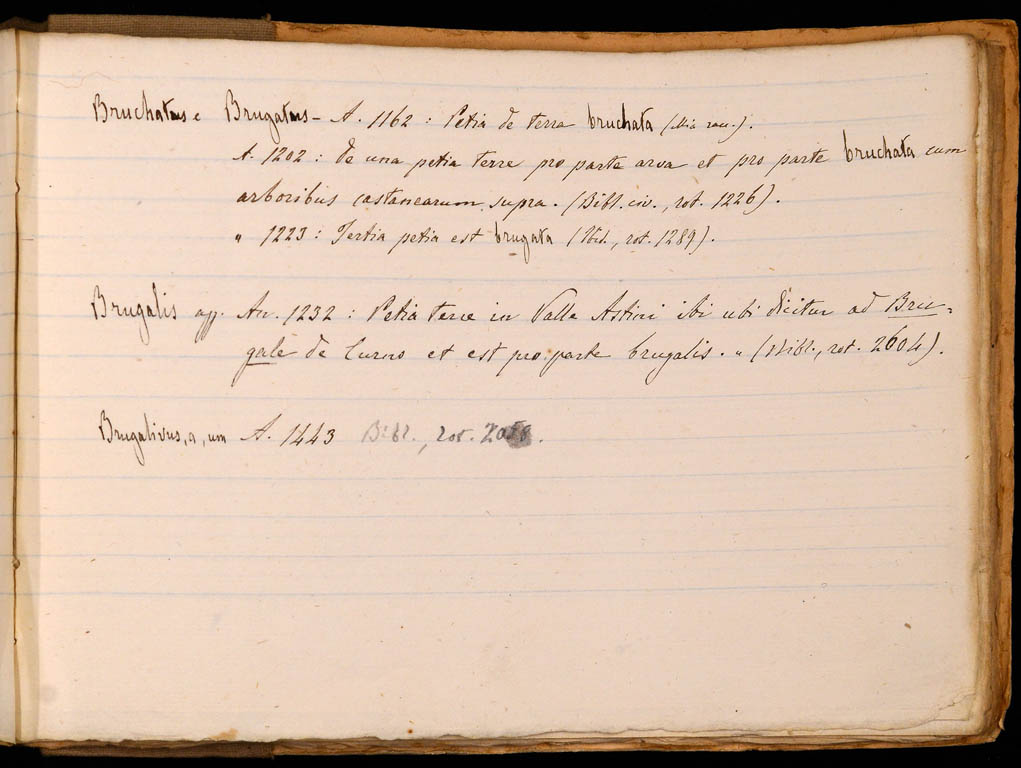 Bruchatus e Brugatus - A. 1162 : Petia de terra bruchata (Mia racc.).
A. 1202 : de una petia terre pro parte arva et pro parte bruchata cum
arboribus castanearum supra. (Bibl. civ., rot. 1226).
" 1223 : Tertia petia est brugata (Ibid., rot. 1289).
Brugalis agg. An. 1232 : Petia terre in Valle Astini ibi ubi dicitur ad Bru-
gale de Curno et est pro parte brugalis. " (Bibl., rot. 2604).
Brugalivus, a, um A. 1443 Bibl., rot.